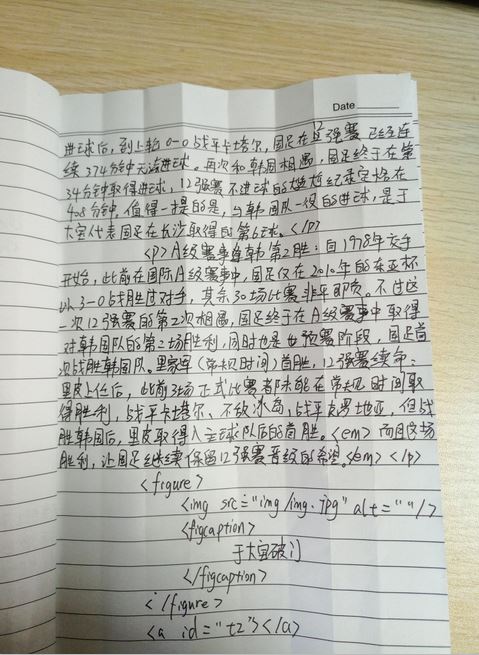 Date
进球后，到上轮0-0战平卡塔尔，国足在12强赛已经连
续374分钟无法进球。再次和韩国相遇，国足终于在第
34分钟取得进球，12强赛不进球的尴尬纪录定格在
408分钟，值得一提的是，与韩国队一役的进球，是于
大宝代表国足在长沙取得的第6球。</p>
<p>A级赛事逢韩第2胜：自1978年交手
开始，此前在国际A级赛事中，国足仅在2010年的东亚杯
以3-0战胜过对手，其余30场比赛非平即负。不过这
一次12强赛的第2次相遇，国足终于在A级赛事中取得
对韩国队的第二场胜利，同时也是世预赛阶段，国足首
次战胜韩国队。里家军（常规时间）首胜，12强赛续命：
里皮上任后，此前3场正式比赛都未能在常规时间取
得胜利，战平卡塔尔、不敌冰岛，战平克罗地亚，但战
胜韩国后，里皮取得入主球队后的首胜。<em>而且这场
胜利，让国足继续保留12强赛晋级的希望。<em></p>
<figure>
<img src="img/img.jpg" alt=""/>
<figcaption>
于大宝破门
</figcaption>
</figure>
<a id="t2"></a>